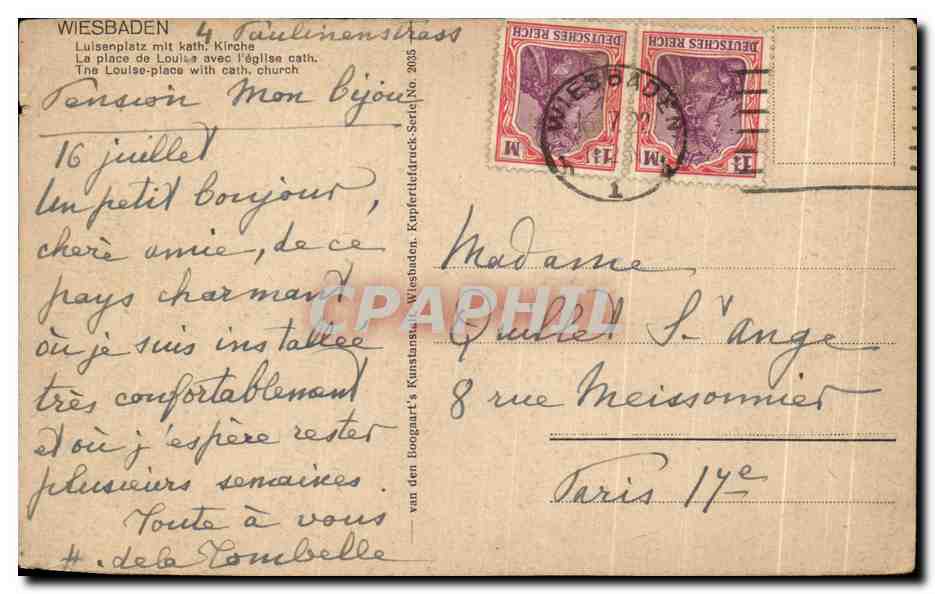 WIESBADEN 4 Paulinenstrass
Luisenplatz mit kath. Kirche
La place de Louise avec l'église cath.
The Louise-place with cath. church
Pension Mon bijou
16 juillet
Un petit bonjour,
chère amie, de ce
pays charmant
où je suis installée
très confortablement
et où j'espère rester
plusieurs semaines.
Toute à vous
H. de la Tombelle
van den Boogaart's Kunstanstalt, Wiesbaden. Kupfertiefdruck-Serie No. 2035
DEUTSCHES REICH
1¼ M
DEUTSCHES REICH
1¼ M
WIESBADEN
1
Madame
Quillet St Ange
8 rue Meissonnier
Paris 17e
CPAPHIL